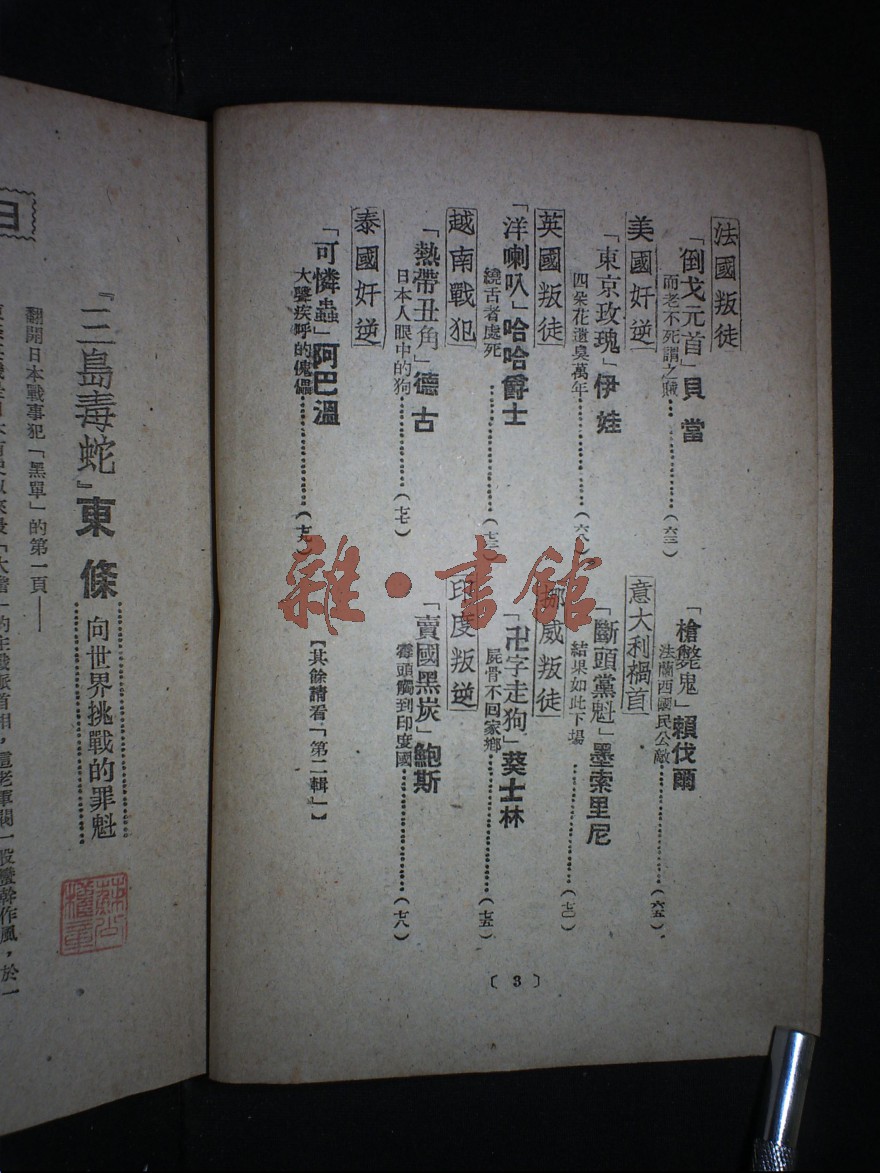 法國叛徒
「倒戈元首」貝當
而老不死謂之賊……(六三)
「槍斃鬼」賴伐爾
法蘭西國民公敵……(六五)
美國奸逆
「東京玫瑰」伊娃
四朵花遺臭萬年……(六八)
意大利禍首
「斷頭黨魁」墨索里尼
結果如此下場……(七〇)
英國叛徒
「洋喇叭」哈哈爵士
繞舌者處死……
挪威叛徒
「卍字走狗」葵士林
屍骨不回家鄉……(七五)
越南戰犯
「熱帶丑角」德古
日本人眼中的狗……(七七)
印度叛逆
「賣國黑炭」鮑斯
霉頭觸到印度國……(七八)
泰國奸逆
「可憐蟲」阿巴溫
大聲疾呼的傀儡……(七九)
【其餘請看「第二輯」】
〔3〕
雜·書館
『三島毒蛇』東條……向世界挑戰的罪魁……
翻開日本戰事犯「黑單」的第一頁——